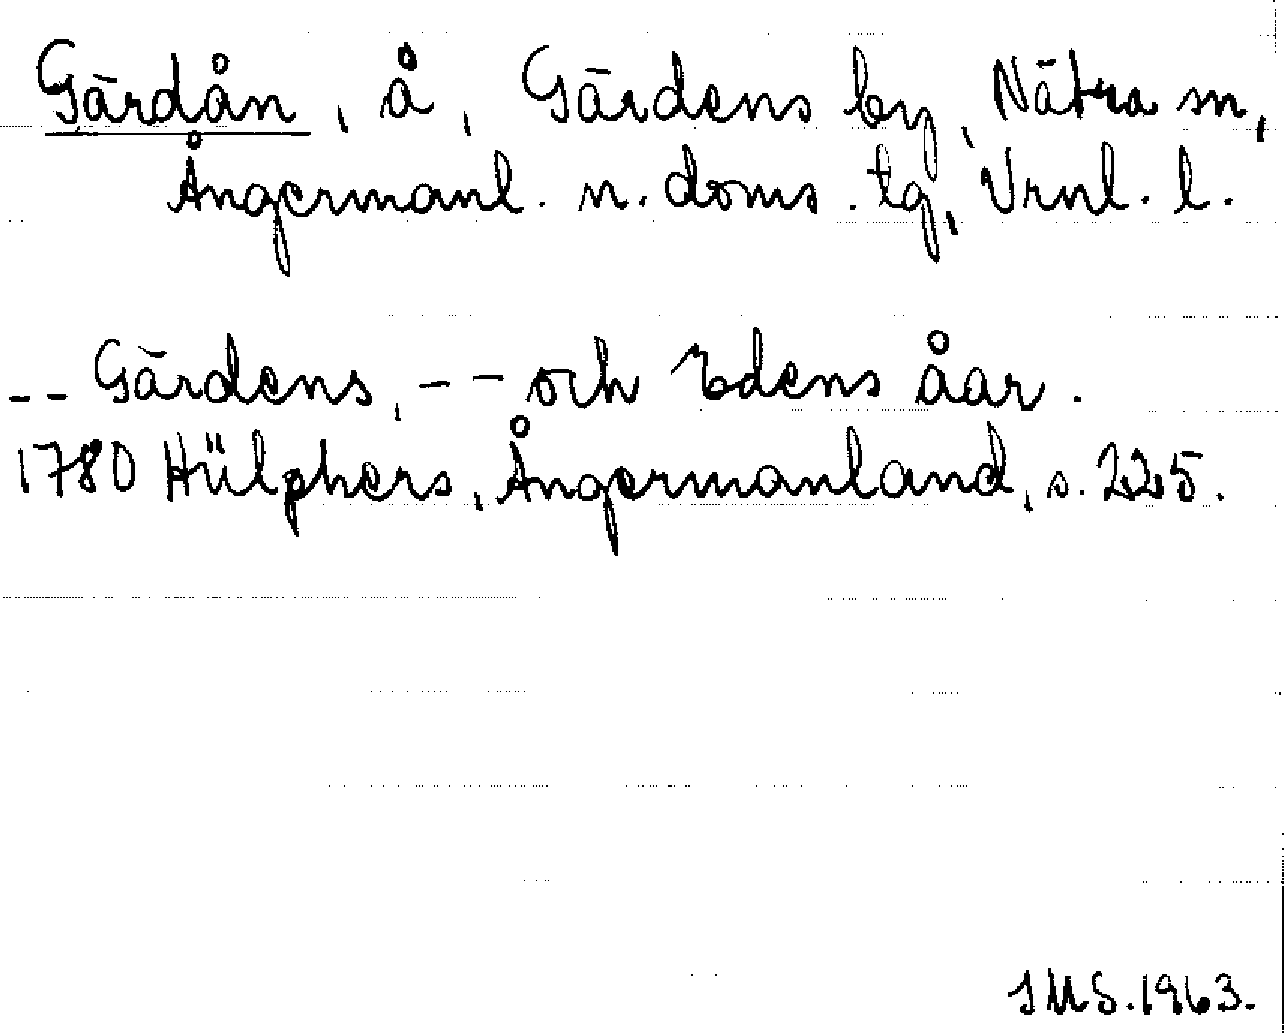 Gärdån, å, Gärdens by, Nätra sn,
Ångermanl. n. doms. tg, Vrnl. l.
-- Gärdens, -- och Edens åar.
1780 Hülphers, Ångermanland, s. 225.
SMS. 1963.